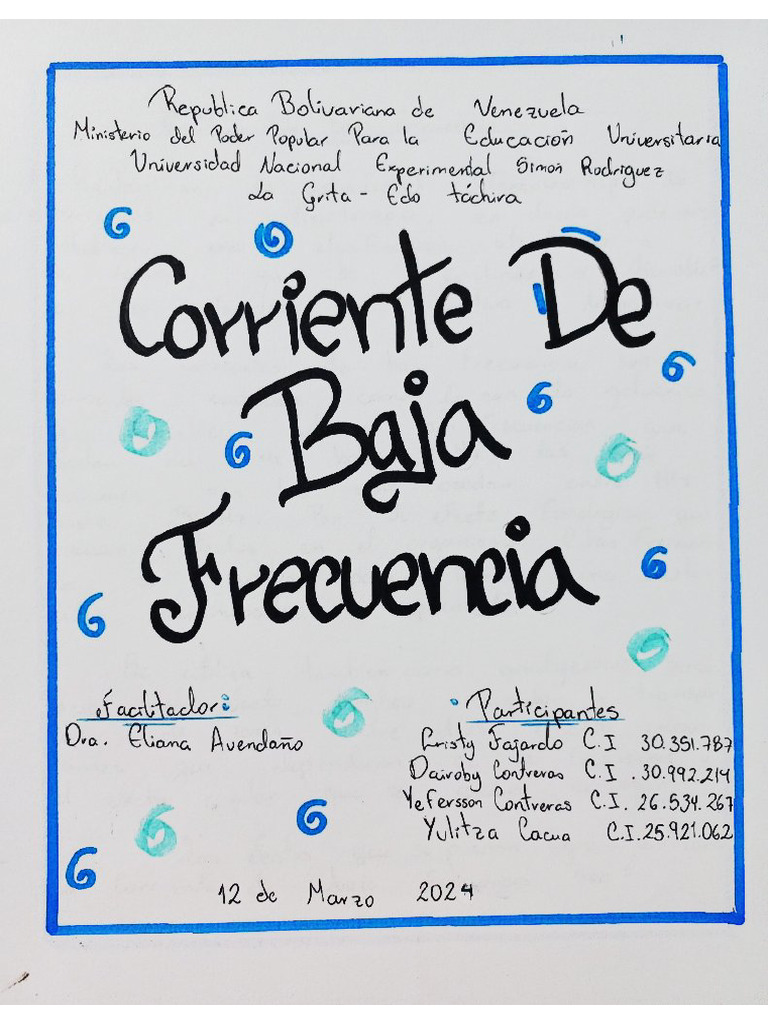 Republica Bolivariana de Venezuela
Ministerio del Poder Popular Para la Educación Universitaria
Universidad Nacional Experimental Simón Rodriguez
La Grita - Edo táchira
Corriente De
Baja
Frecuencia
Facilitador:
Dra. Eliana Avendaño
Participantes
Cristy Fajardo C.I 30.351.787
Dairoby Contreras C.I. 30.992.214
Yefersson Contreras C.I. 26.534.267
Yulitza Cacua C.I. 25.921.062
12 de Marzo 2024